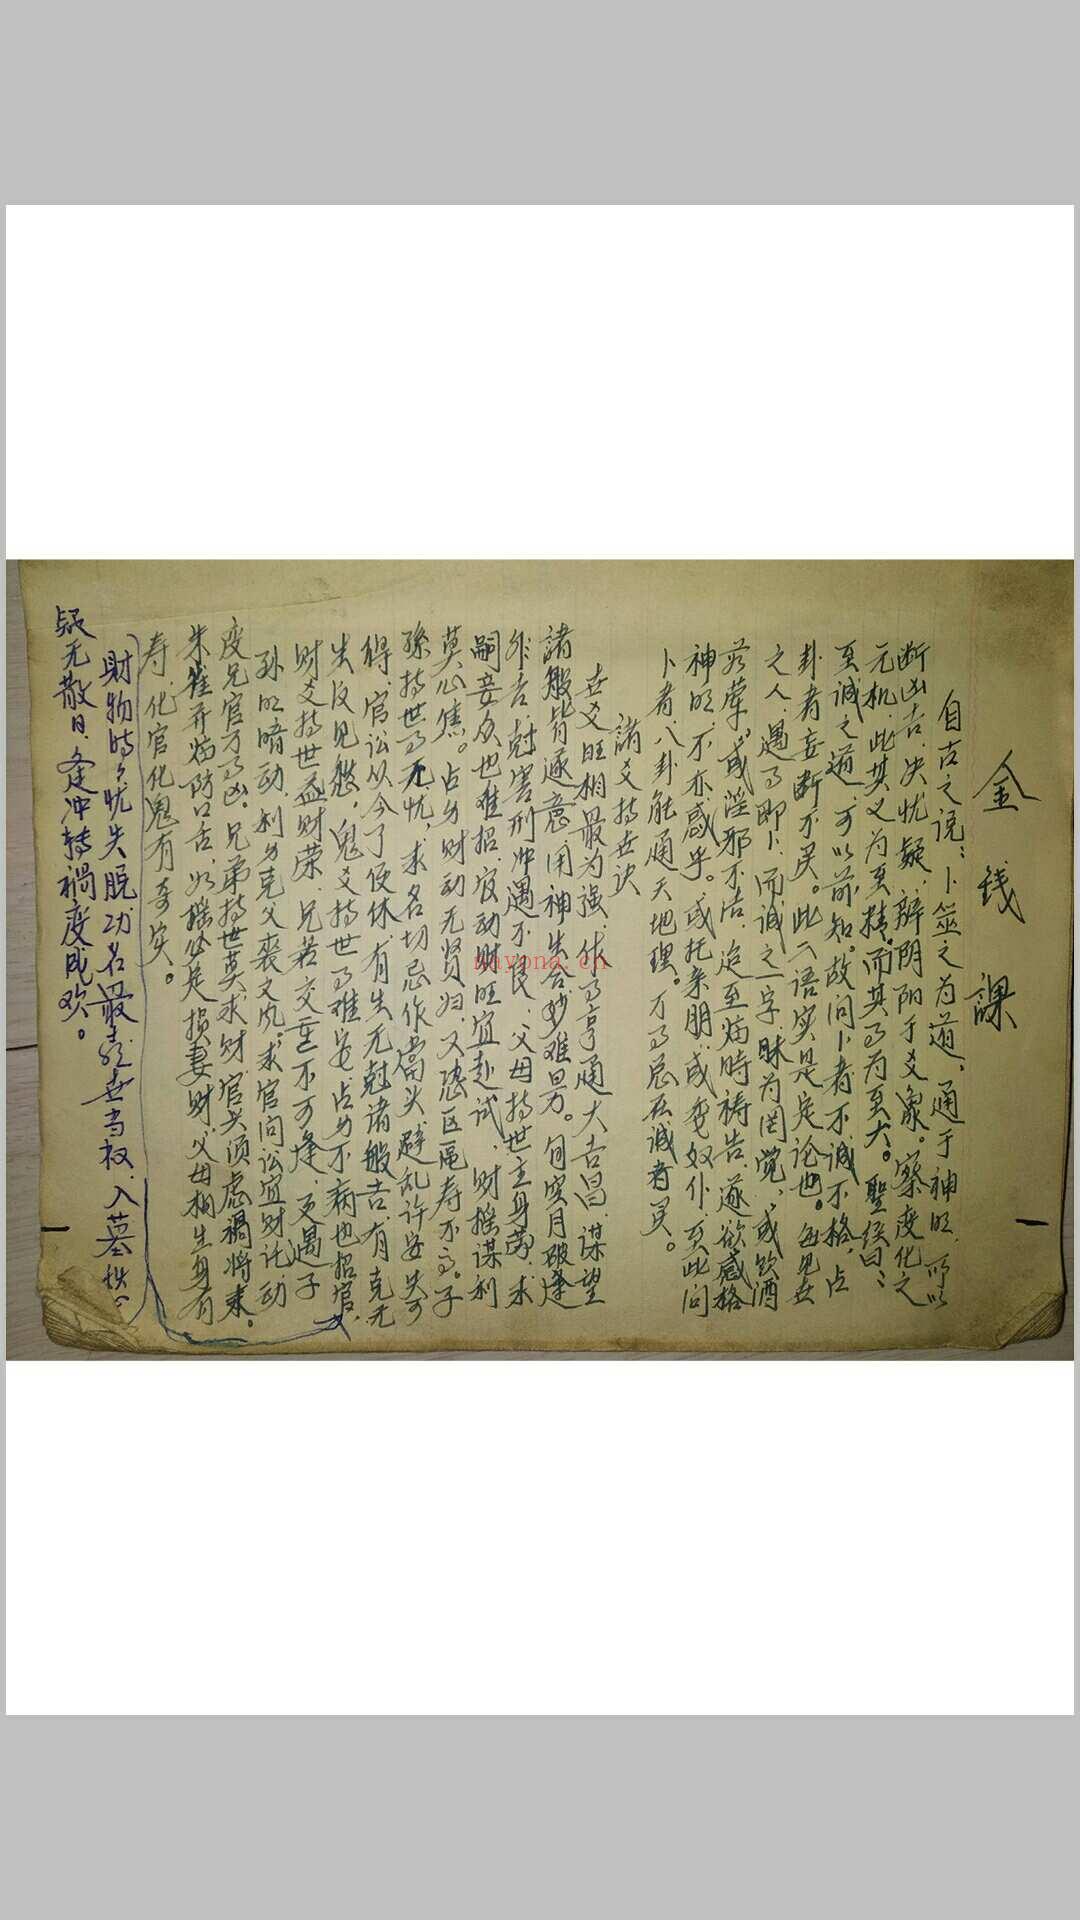 金钱课
自古之说：卜筮之为道，通于神明，所以
断凶吉，决忧疑，辨阴阳于爻象。察度化之
元机，此其义为至精，而其事为至大。聖经曰：
至诚之道，可以前知。故问卜者不诚不格，占
卦者妄断不灵。此二语实是定论也。每见世
之人，遇事即卜，而诚之一字，昧为罔觉，或饮酒
茹荤，或淫邪不洁，迨至临時祷告，遂欲感格
神明，不亦惑乎。或托亲朋，或委奴仆，至此问
卜者，八卦能通天地理。万事总在诚者灵。
諸爻持世诀
世爻旺相最为强，作事亨通大吉昌，谋望
諸般皆遂意，用神生合妙难量。旬空月破逢
非吉，尅害刑冲遇不良，父母持世主身劳，求
嗣妾众也难招，官动财旺宜赴试，财摇谋利
莫心焦。占身财动无贤妇，又恐区区寿不高。子
孫持世事无忧，求名切忌作當头，避乱许安失可
得，官讼从今了便休，有生无尅諸般吉，有克无
生反见愁，鬼爻持世事难安，占身不病也招官，
财爻持世益财荣，兄若交重不可逢，更遇子
孙明暗动，利身克父丧文风，求官问讼宜财託，动
变兄官万事凶。兄弟持世莫求财，官兴须虑禍将来。
朱雀并临防口舌，如摇必定损妻财，父母相生身有
寿，化官化鬼有奇突。
財物時々忧失脱，功名最喜世当权，入墓
疑无散日，逢冲转禍变成欢。
nayona.cn